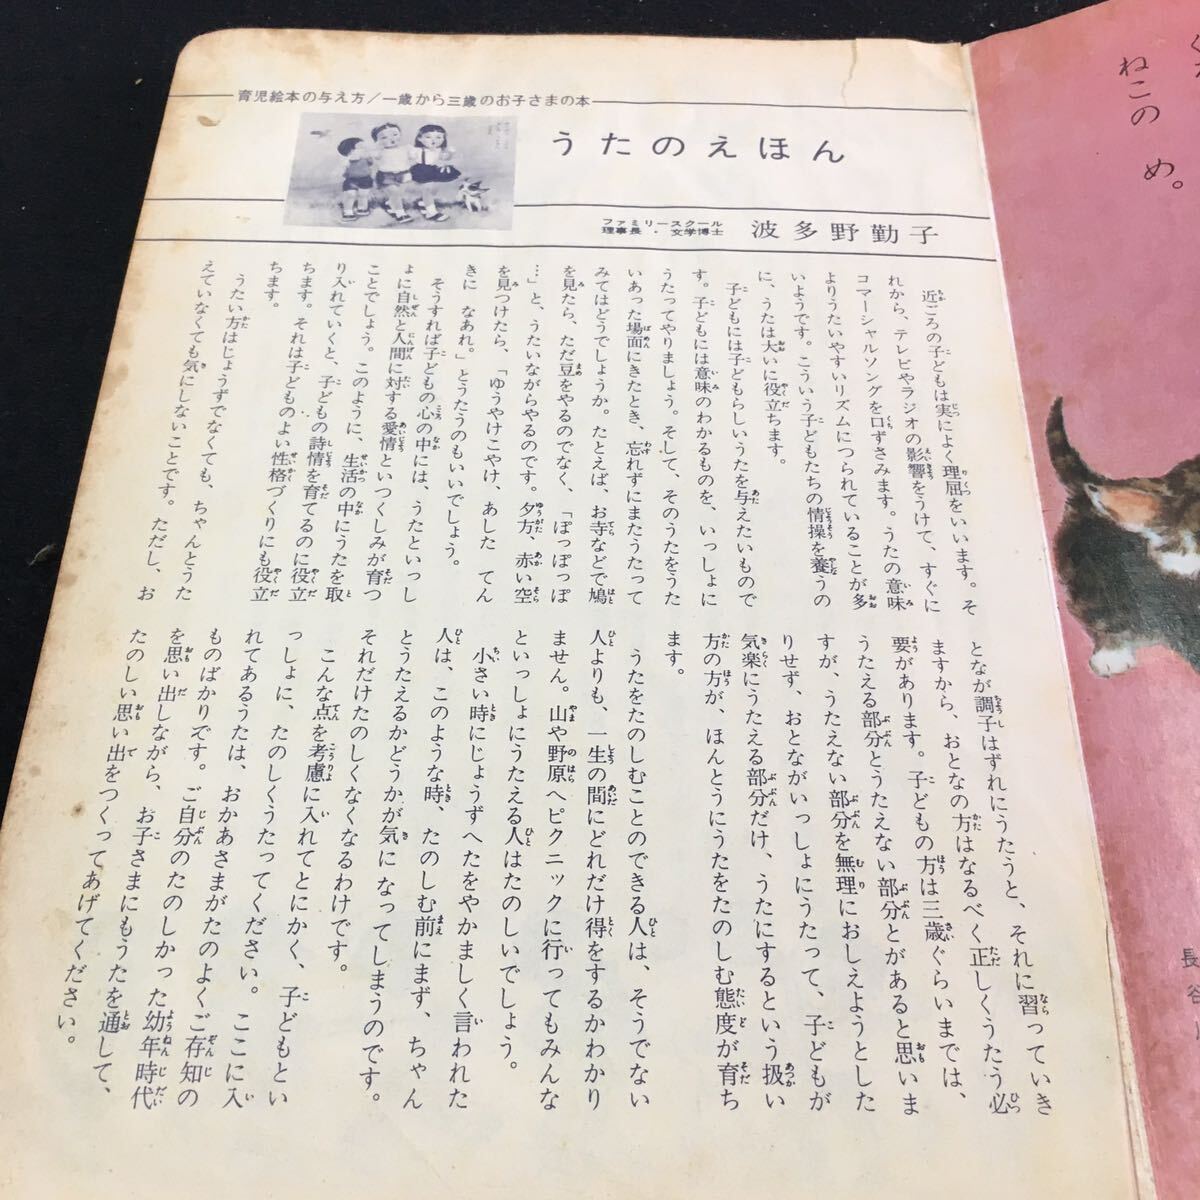 育児絵本の与え方/一歳から三歳のお子さまの本
うたのえほん
ファミリースクール
理事長・文学博士
波多野勤子
近ごろの子どもは実によく理屈をいいます。そ
れから、テレビやラジオの影響をうけて、すぐに
コマーシャルソングを口ずさみます。うたの意味
よりうたいやすいリズムにつられていることが多
いようです。こういう子どもたちの情操を養うの
に、うたは大いに役立ちます。
子どもには子どもらしいうたを与えたいもので
す。子どもには意味のわかるものを、いっしょに
うたってやりましょう。そして、そのうたをうた
いあった場面にきたとき、忘れずにまたうたって
みてはどうでしょうか。たとえば、お寺などで鳩
を見たら、ただ豆をやるのでなく、「ぽっぽっぽ
…」と、うたいながらやるのです。夕方、赤い空
を見つけたら、「ゆうやけこやけ、あした てん
きに なあれ。」とうたうのもいいでしょう。
そうすれば子どもの心の中には、うたといっし
ょに自然と人間に対する愛情といつくしみが育つ
ことでしょう。このように、生活の中にうたを取
り入れていくと、子どもの詩情を育てるのに役立
ちます。それは子どものよい性格づくりにも役立
ちます。
うたい方はじょうずでなくても、ちゃんとうた
えていなくても気にしないことです。ただし、お
となが調子はずれにうたうと、それに習っていき
ますから、おとなの方はなるべく正しくうたう必
要があります。子どもの方は三歳ぐらいまでは、
うたえる部分とうたえない部分とがあると思いま
すが、うたえない部分を無理におしえようとした
りせず、おとながいっしょにうたって、子どもが
気楽にうたえる部分だけ、うたにするという扱い
方の方が、ほんとうにうたをたのしむ態度が育ち
ます。
うたをたのしむことのできる人は、そうでない
人よりも、一生の間にどれだけ得をするかわかり
ません。山や野原へピクニックに行ってもみんな
といっしょにうたえる人はたのしいでしょう。
小さい時にじょうずへたをやかましく言われた
人は、このような時、たのしむ前にまず、ちゃん
とうたえるかどうかが気になってしまうのです。
それだけたのしくなくなるわけです。
こんな点を考慮に入れてとにかく、子どもとい
っしょに、たのしくうたってください。ここに入
れてあるうたは、おかあさまがたのよくご存知の
ものばかりです。ご自分のたのしかった幼年時代
を思い出しながら、お子さまにもうたを通して、
たのしい思い出をつくってあげてください。
ねこの め。
長谷